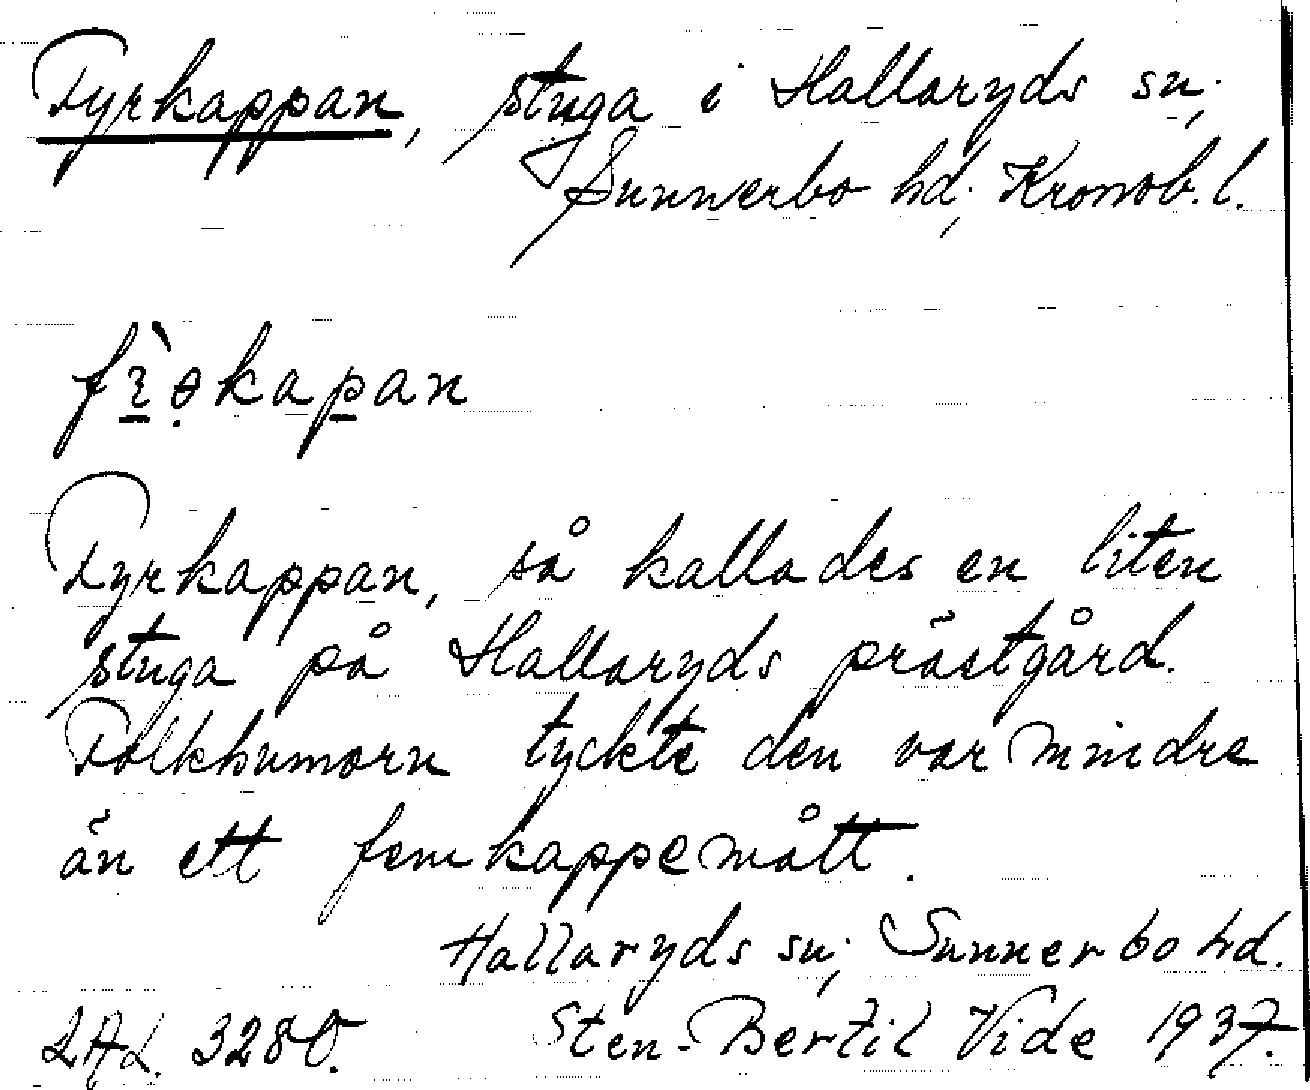 Fyrkappan, stuga i Hallaryds sn,
Sunnerbo hd, Kronob. l.
Fyrkappan, så kallades en liten
stuga på Hallaryds prästgård.
Folkhumorn tyckte den var mindre
än ett femkappemått.
Hallaryds sn, Sunnerbo hd.
LAL. 3280. Sten-Bertil Vide 1937.